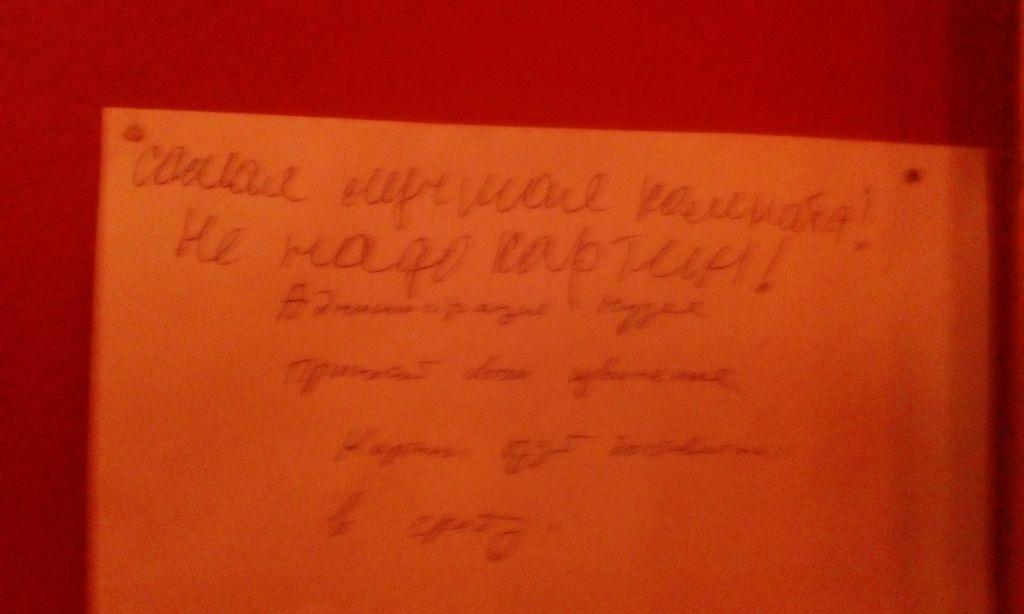 самая лучшая комната!
Не надо картин!
Администрация музея
приносит свои извинения
Картины будут
в среду.